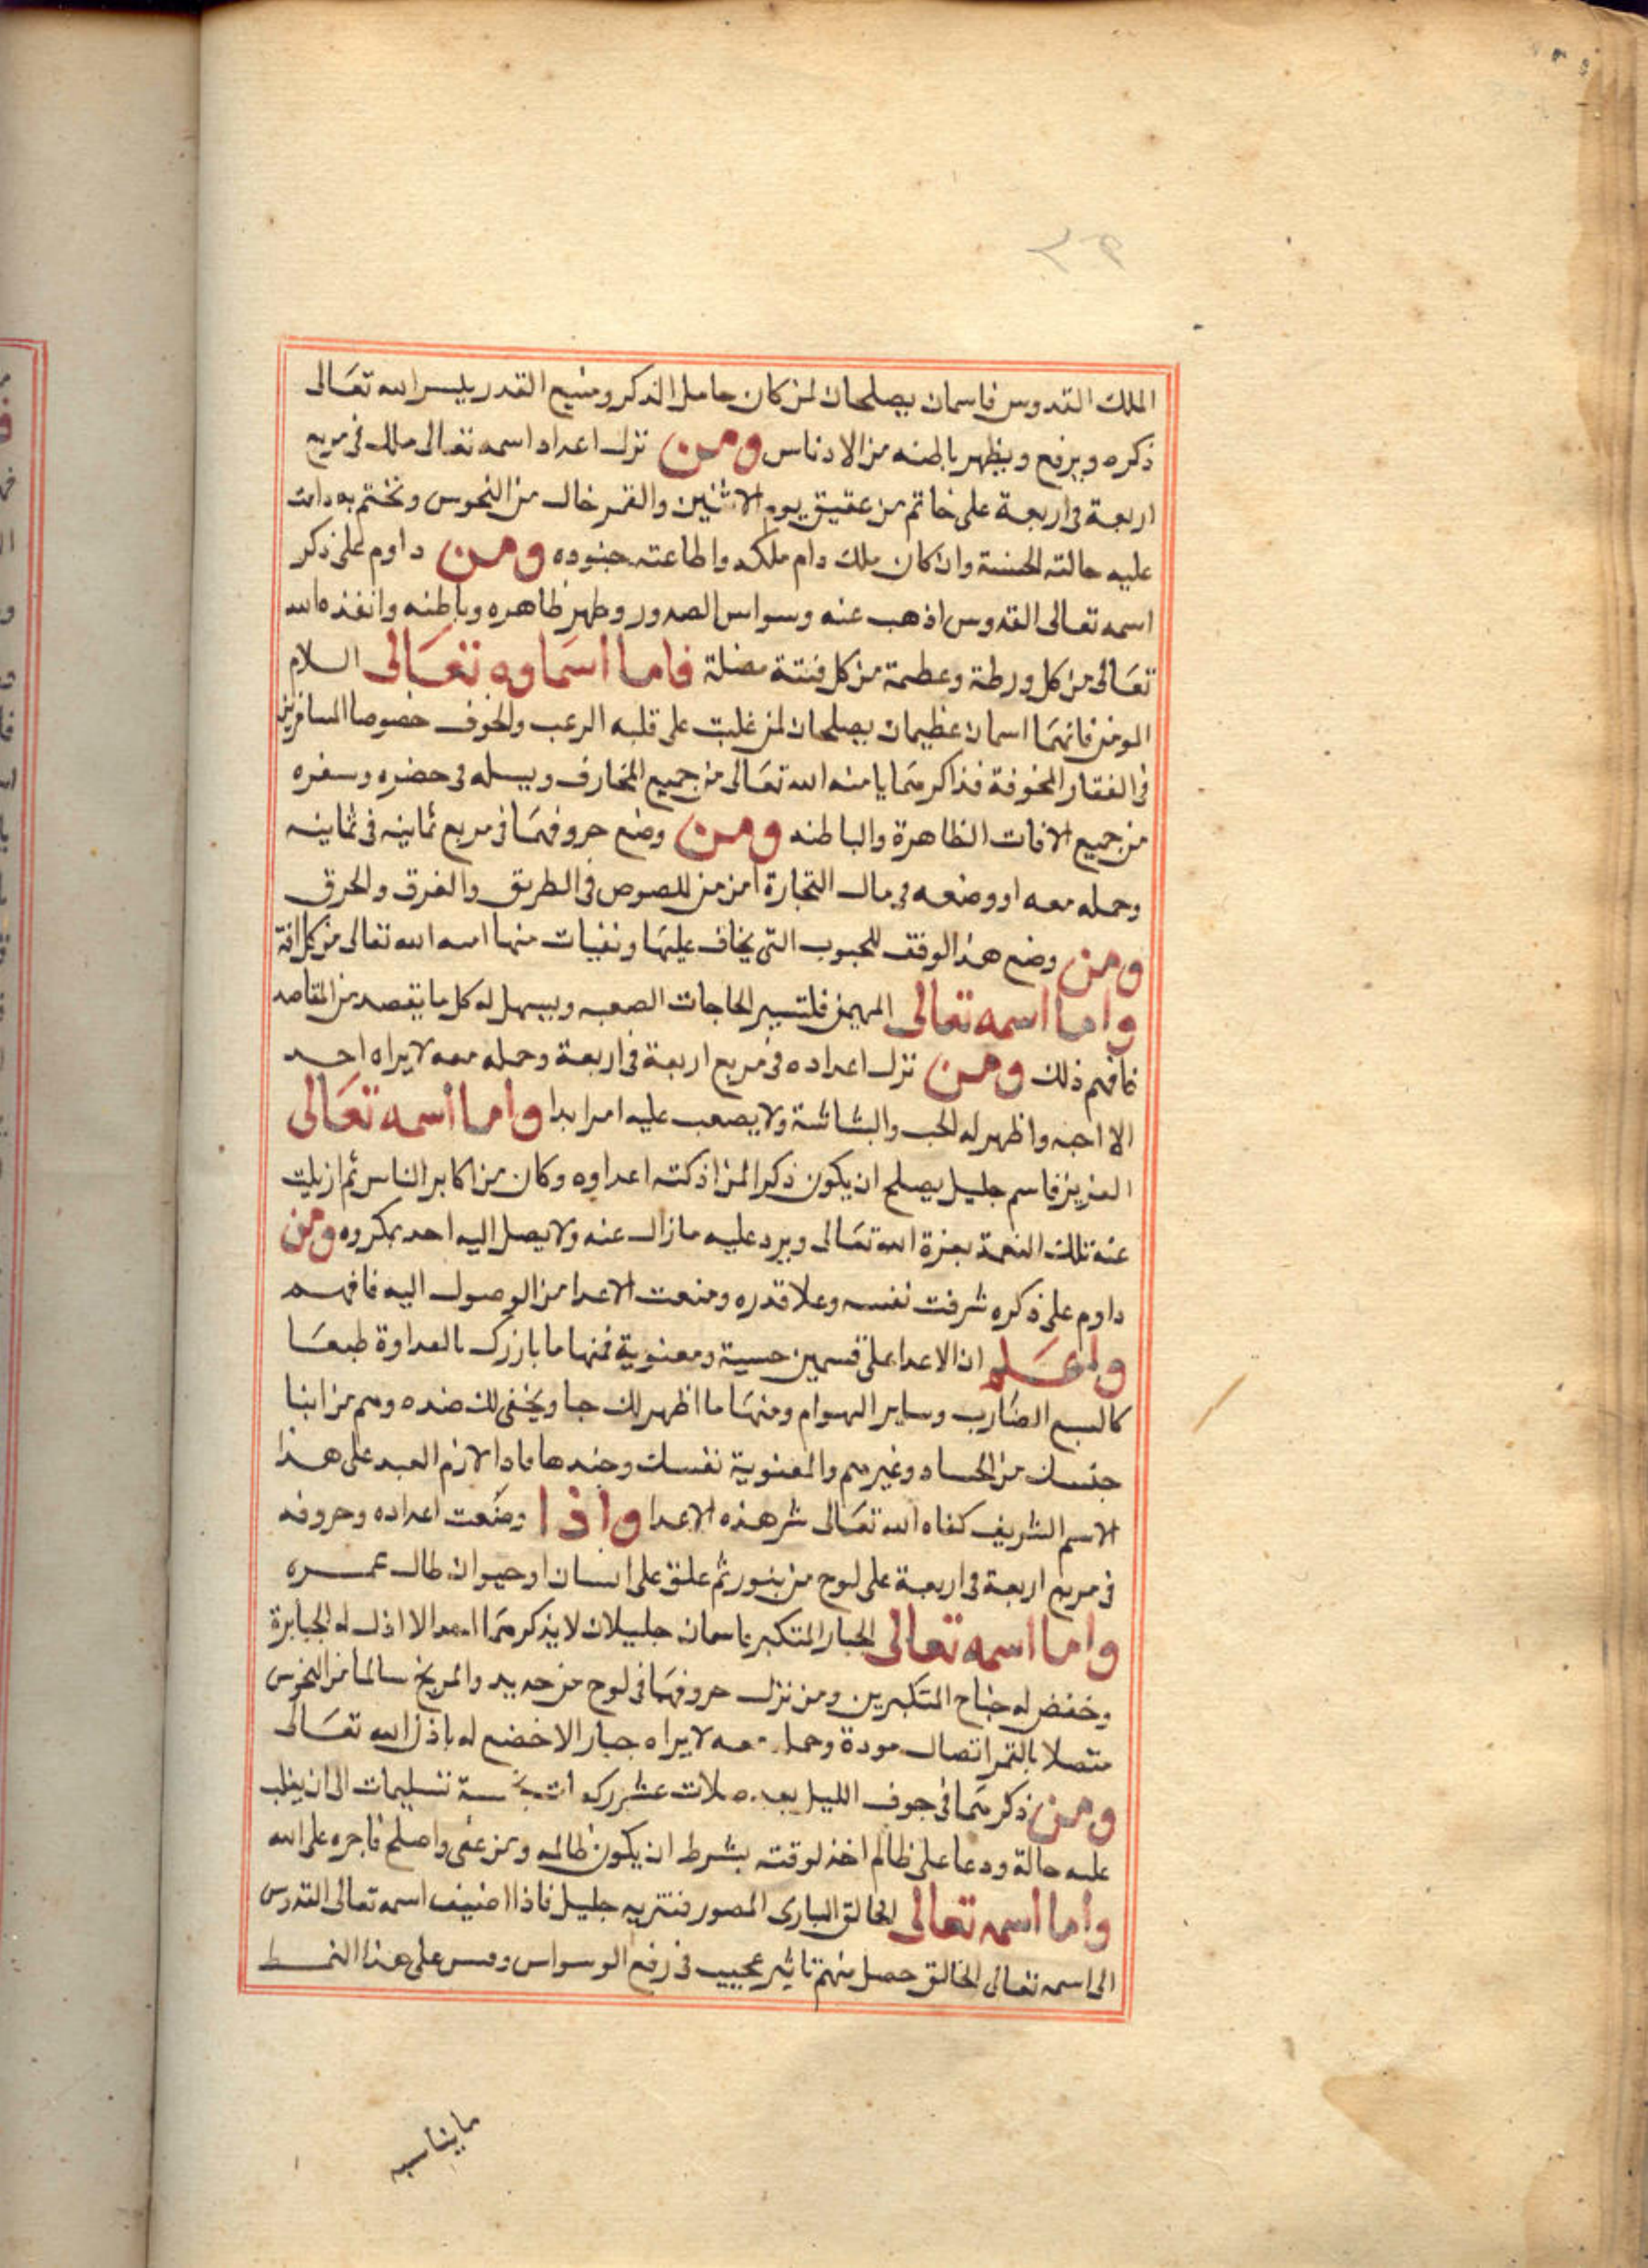 الملك القدوس فاسمان يصلحان لمن كان حامل الذكر وضيع القدر ييسر الله تعالى
ذكره ويرفع ويظهر باطنه من الادناس ومن نزل اعداد اسمه تعالى ملك في مربع
اربعة في اربعة على خاتم من عقيق يوم الاثنين والقمر خال من النحوس وتختم به دامت
عليه حالته الحسنة وان كان ملك دام ملكه واطاعته جنوده ومن داوم على ذكر
اسمه تعالى القدوس اذهب عنه وسواس الصدور وطهر ظاهره وباطنه وانقذه الله
تعالى من كل ورطة وعصمة من كل فتنة مضلة فاما اسماوه تعالى السلام
المومن فانهما اسمان عظيمان يصلحان لمن غلبت على قلبه الرعب والخوف خصوصا المسافرين
في الفقار المخوفة فذاكرهما يامنه الله تعالى من جميع المخارف ويسلمه في حضره وسفره
من جميع الافات الظاهرة والباطنه ومن وضع حروفهما في مربع ثمانيه في ثمانيه
وحمله معه او وضعه في مال التجارة امن من اللصوص في الطريق والغرق والحرق
ومن وضع هذا الوفق للحبوب التي يخاف عليها ونفيات منها امنه الله تعالى من كل افة
واما اسمه تعالى المهيمن فلتيسير الحاجات الصعبه ويسهل له كل ما يقصد من المقاصد
فافهم ذلك ومن نزل اعداده في مربع اربعة في اربعة وحمله معه لا يراه احد
الا احبه واظهر له الحب والبشاشة ولا يصعب عليه امر ابدا واما اسمه تعالى
العزيز فاسم جليل يصلح ان يكون ذكرا لمن اذكته اعداوه وكان من اكابر الناس ثم ازيلت
عنه تلك النعمة بعزة الله تعالى ويرد عليه ما زال عنه ولا يصل اليه احد بمكروه ومن
داوم على ذكره شرفت نفسه وعلا قدره ومنعت الاعدا من الوصول اليه فافهم
واعلم ان الاعدا على قسمين حسية ومعنوية فمنها ما بارزك بالعداوة طبعا
كالسبع الضارب وساير الهوام ومنها ما اظهر لك حبا ويخفي لك ضده وهم من ابنا
جنسك من الحساد وغيرهم والمعنوية نفسك وجندها فاذا لازم العبد على هذا
الاسم الشريف كفاه الله تعالى شر هذه الاعدا واذا وضعت اعداده وحروفه
في مربع اربعة في اربعة على لوح من بنور ثم علق على انسان او حيوان طال عمره
واما اسمه تعالى الجبار المتكبر فاسمان جليلان لا يذكرهما احد الا اذل له الجبابرة
وخفض له جناح المتكبرين ومن نزل حروفهما في لوح من حديد والمريخ سالما من النحوس
متصلا بالقمر اتصال مودة وحمله معه لا يراه جبار الا خضع له باذن الله تعالى
ومن ذكرهما في جوف الليل بعد صلات عشر ركعات بخمسة تسليمات الى ان يغلب
عليه حالة ودعا على ظالم اخذ لوقته بشرط ان يكون ظالمه ومن عفى واصلح فاجره على الله
واما اسمه تعالى الخالق البارى المصور فتتريه جليل فاذا اضيف اسمه تعالى القدوس
الى اسمه تعالى الخالق حصل منهم تاثير عجيب في رفع الوسواس وقس على هذا النمط
ما يناسبه